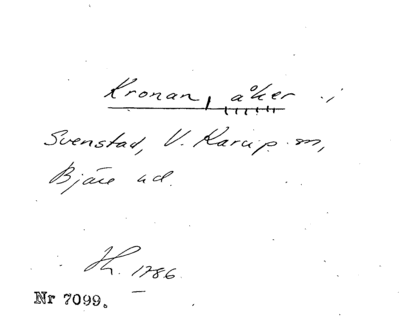 Kronan, åker i
Svenstad, V. Karup sn,
Bjäre hd.
Jh. 1786
Nr 7099.